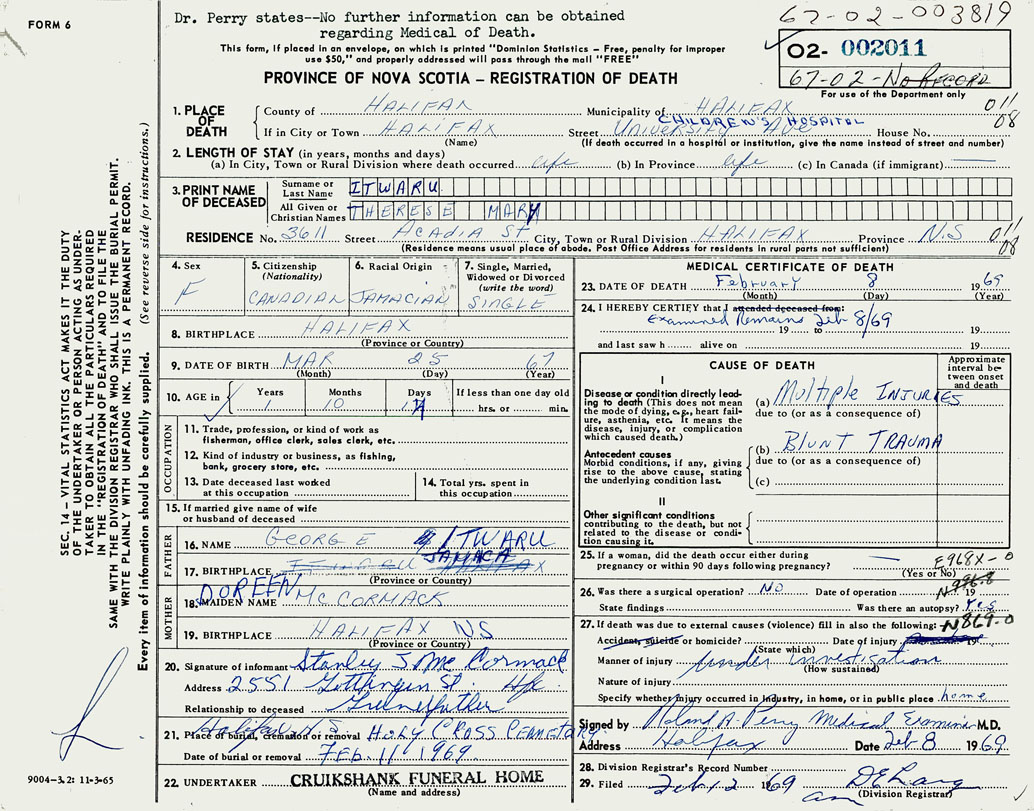 FORM 6
Dr. Perry states--No further information can be obtained
regarding Medical of Death.
67-02-003819
This form, if placed in an envelope, on which is printed "Dominion Statistics - Free, penalty for improper
use $50," and properly addressed will pass through the mail "FREE"
02- 002011
67-02-No Record
For use of the Department only
PROVINCE OF NOVA SCOTIA - REGISTRATION OF DEATH
1. PLACE OF DEATH
County of HALIFAX Municipality of HALIFAX
011
08
CHILDREN'S HOSPITAL
If in City or Town HALIFAX Street University Ave House No.
(Name) (If death occurred in a hospital or institution, give the name instead of street and number)
2. LENGTH OF STAY (in years, months and days)
(a) In City, Town or Rural Division where death occurred life (b) In Province life (c) In Canada (if immigrant)
3. PRINT NAME OF DECEASED
Surname or Last Name ITWARU
All Given or Christian Names THERESE MARY
RESIDENCE No. 3611 Street Acadia St City, Town or Rural Division HALIFAX Province N.S
011
08
(Residence means usual place of abode. Post Office Address for residents in rural parts not sufficient)
4. Sex
F
5. Citizenship
(Nationality)
CANADIAN
6. Racial Origin
JAMACIAN
7. Single, Married, Widowed or Divorced
(write the word)
SINGLE
8. BIRTHPLACE HALIFAX
(Province or Country)
9. DATE OF BIRTH MAR 25 67
(Month) (Day) (Year)
10. AGE in
Years Months Days If less than one day old
1 10 14 hrs. or min.
OCCUPATION
11. Trade, profession, or kind of work as
fisherman, office clerk, sales clerk, etc.
12. Kind of industry or business, as fishing,
bank, grocery store, etc.
13. Date deceased last worked
at this occupation
14. Total yrs. spent in
this occupation
15. If married give name of wife
or husband of deceased
FATHER
16. NAME GEORGE ITWARU
JAMACA
17. BIRTHPLACE
(Province or Country)
MOTHER
DOREEN
18. MAIDEN NAME MC CORMACK
19. BIRTHPLACE HALIFAX NS
(Province or Country)
20. Signature of informant Stanley J Mc Cormack
Address 2551 Gottingen St. Hfx
Relationship to deceased Grandfather
21. Place of burial, cremation or removal Halifax N.S. HOLY CROSS CEMETARY
Date of burial or removal FEB. 11 1969
22. UNDERTAKER CRUIKSHANK FUNERAL HOME
(Name and address)
MEDICAL CERTIFICATE OF DEATH
23. DATE OF DEATH February 8 1969
(Month) (Day) (Year)
24. I HEREBY CERTIFY that I attended deceased from:
Examined Remains Feb 8/69
19 to 19
and last saw h alive on 19
CAUSE OF DEATH
Approximate interval between onset and death
I
Disease or condition directly leading to death (This does not mean the mode of dying, e.g., heart failure, asthenia, etc. It means the disease, injury, or complication which caused death.)
(a) Multiple INJURIES
due to (or as a consequence of)
Antecedent causes
Morbid conditions, if any, giving rise to the above cause, stating the underlying condition last.
(b) BLUNT TRAUMA
due to (or as a consequence of)
(c)
II
Other significant conditions
contributing to the death, but not related to the disease or condition causing it.
25. If a woman, did the death occur either during
pregnancy or within 90 days following pregnancy?
(Yes or No)
E968X-0
N996.8
26. Was there a surgical operation? NO Date of operation 19
State findings Was there an autopsy? Yes
27. If death was due to external causes (violence) fill in also the following: N869-0
Accident, suicide or homicide? Date of injury 19
(State which)
Manner of injury Under investigation
(How sustained)
Nature of injury
Specify whether injury occurred in industry, in home, or in public place home
Signed by Roland A. Perry Medical Examiner M.D.
Address Halifax Date Feb 8 1969
28. Division Registrar's Record Number
29. Filed Feb. 12 1969 D E Lang
(Division Registrar)
SEC. 14 - VITAL STATISTICS ACT MAKES IT THE DUTY
OF THE UNDERTAKER OR PERSON ACTING AS UNDER-
TAKER TO OBTAIN ALL THE PARTICULARS REQUIRED
IN THE "REGISTRATION OF DEATH" AND TO FILE THE
SAME WITH THE DIVISION REGISTRAR WHO SHALL ISSUE THE BURIAL PERMIT.
WRITE PLAINLY WITH UNFADING INK. THIS IS A PERMANENT RECORD.
Every item of information should be carefully supplied. (See reverse side for instructions.)
9004-3.2: 11-3-65